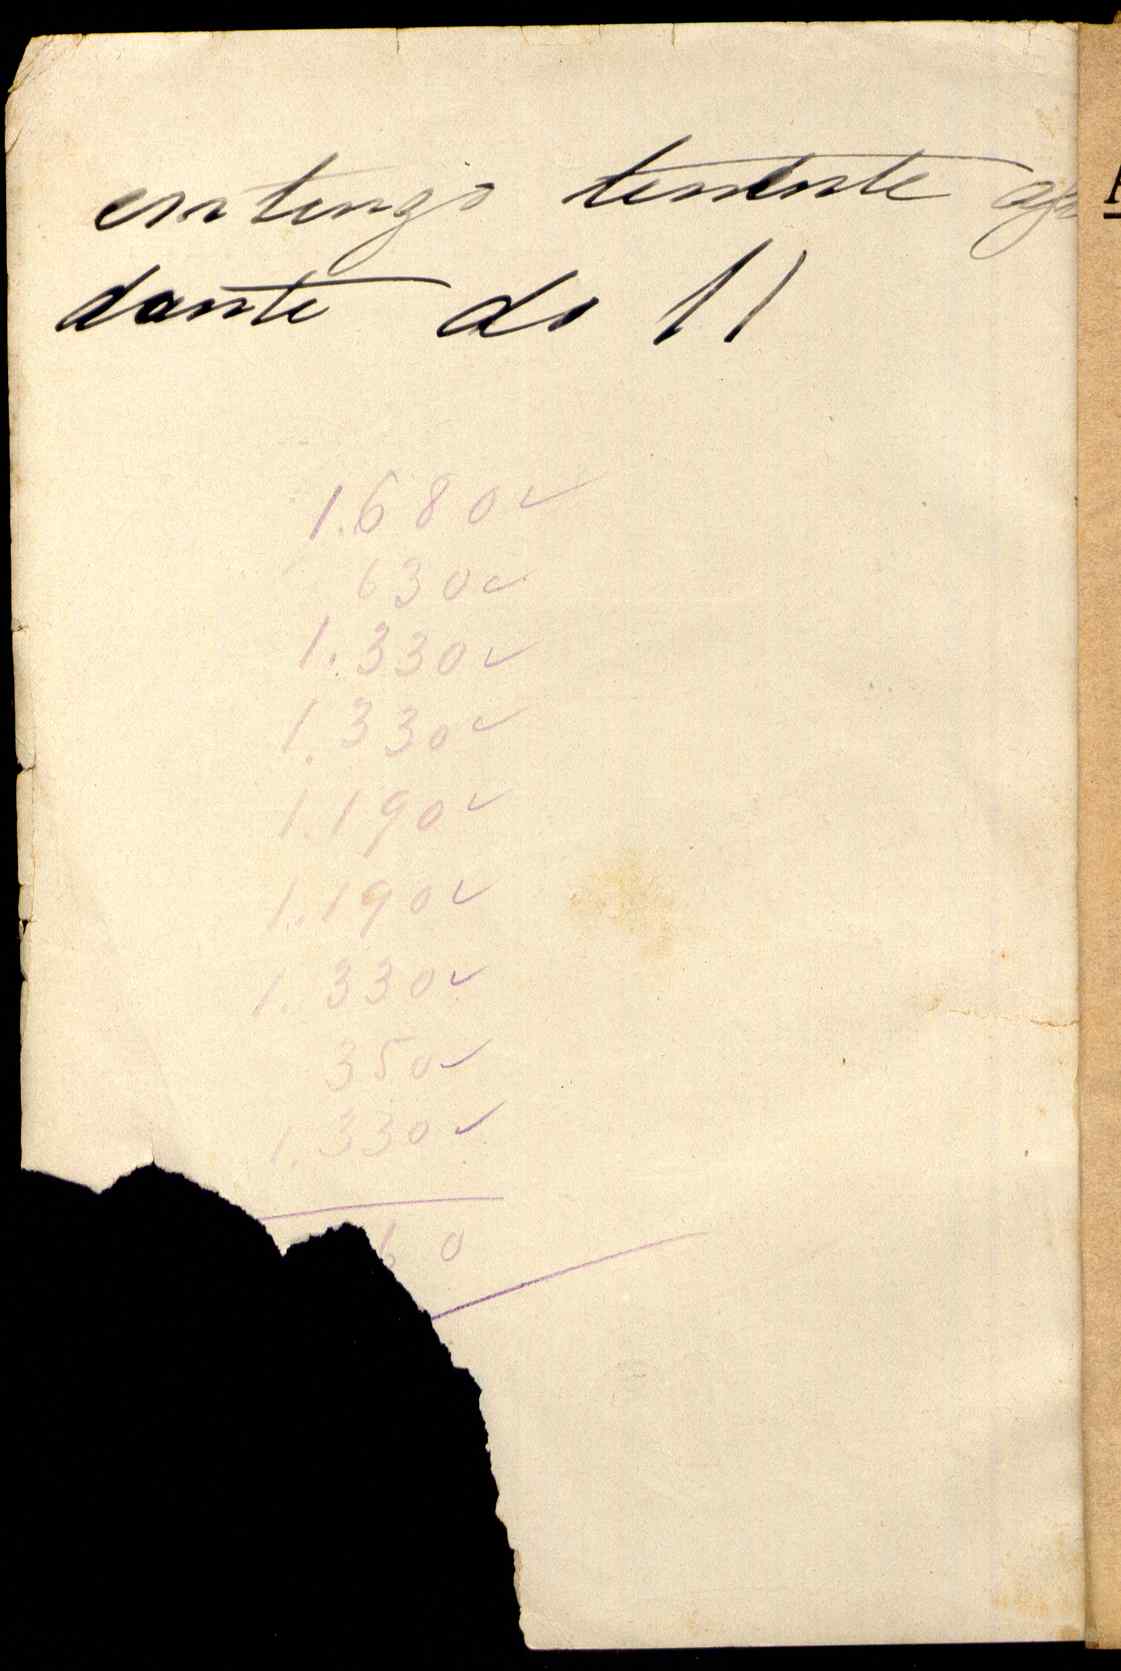 em tempo tenente aju
dante do 11
1.680
630
1.330
1.330
1.190
1.190
1.330
350
1.330
60